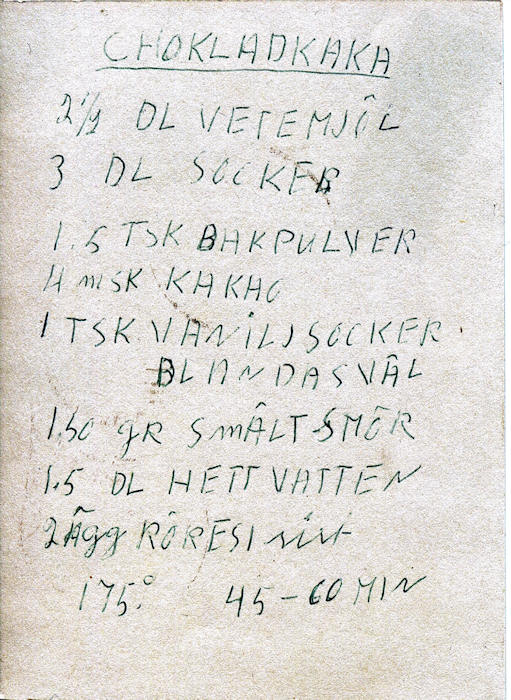 CHOKLADKAKA
2 1/2 DL VETEMJÖL
3 DL SOCKER
1.5 TSK BAKPULVER
4 mSK KAKAO
1 TSK VANILJSOCKER
BLANDAS VÄL
150 gr SMÄLT SMÖR
1.5 DL HETT VATTEN
2 Ägg RÖRES I sist
175° 45-60 MIN